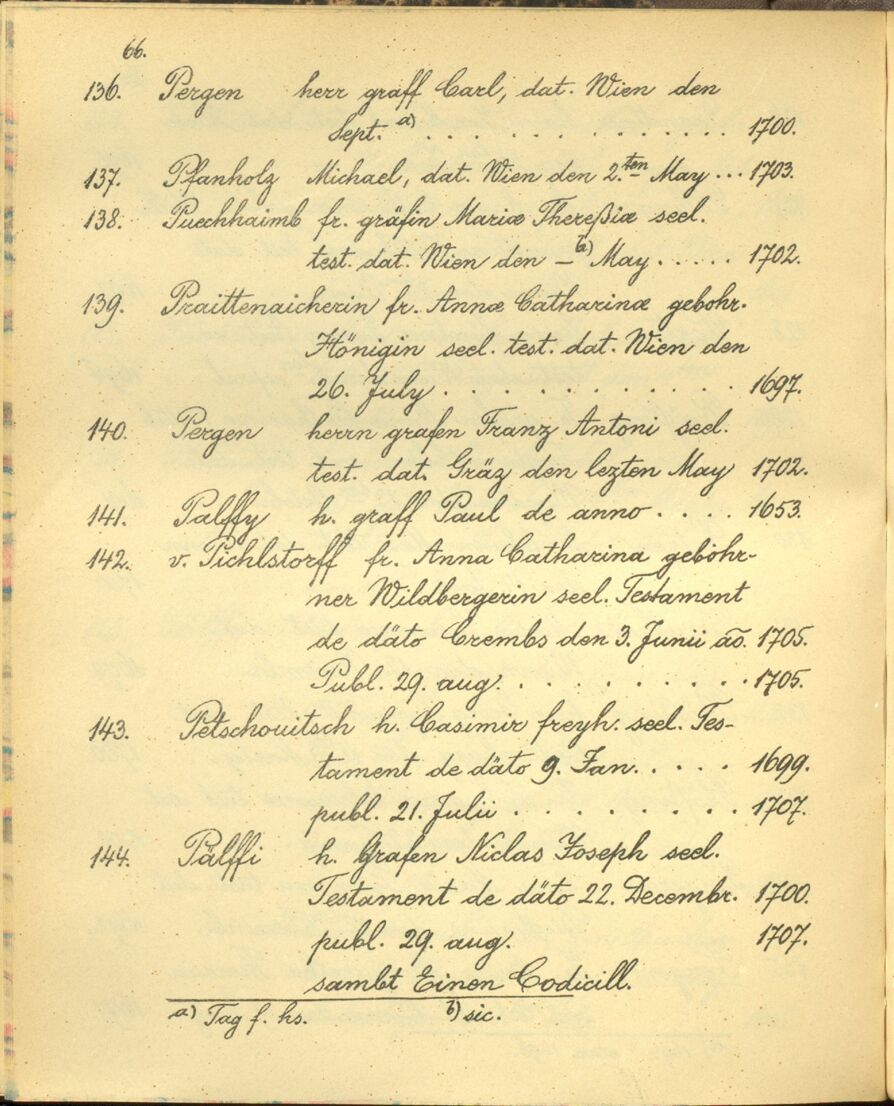 66.
136. Pergen herr graff Carl, dat. Wien den
Sept. a) . . . . . . . . . . . . . . 1700.
137. Pfanholz Michael, dat. Wien den 2.ten May ... 1703.
138. Puechhaimb fr. gräfin Mariæ Thereßiæ seel.
test. dat. Wien den – b) May . . . . . 1702.
139. Praittenaicherin fr. Annæ Catharinæ gebohr.
Hönigin seel. test. dat. Wien den
26. July . . . . . . . . . . . . 1697.
140. Pergen herrn grafen Franz Antoni seel.
test. dat. Gräz den lezten May 1702.
141. Palffy h. graff Paul de anno . . . . 1653.
142. v. Pichlstorff fr. Anna Catharina gebohr-
ner Wildbergerin seel. Testament
de däto Crembs den 3. Junii ão. 1705.
Publ. 29. aug. . . . . . . . . . 1705.
143. Petschouitsch h. Casimir freyh. seel. Tes-
tament de däto 9. Jan. . . . . 1699.
publ. 21. Julii . . . . . . . . 1707.
144. Pälffi h. Grafen Niclas Joseph seel.
Testament de däto 22. Decembr. 1700.
publ. 29. aug. 1707.
sambt Einen Codicill.
a) Tag f. hs. b) sic.